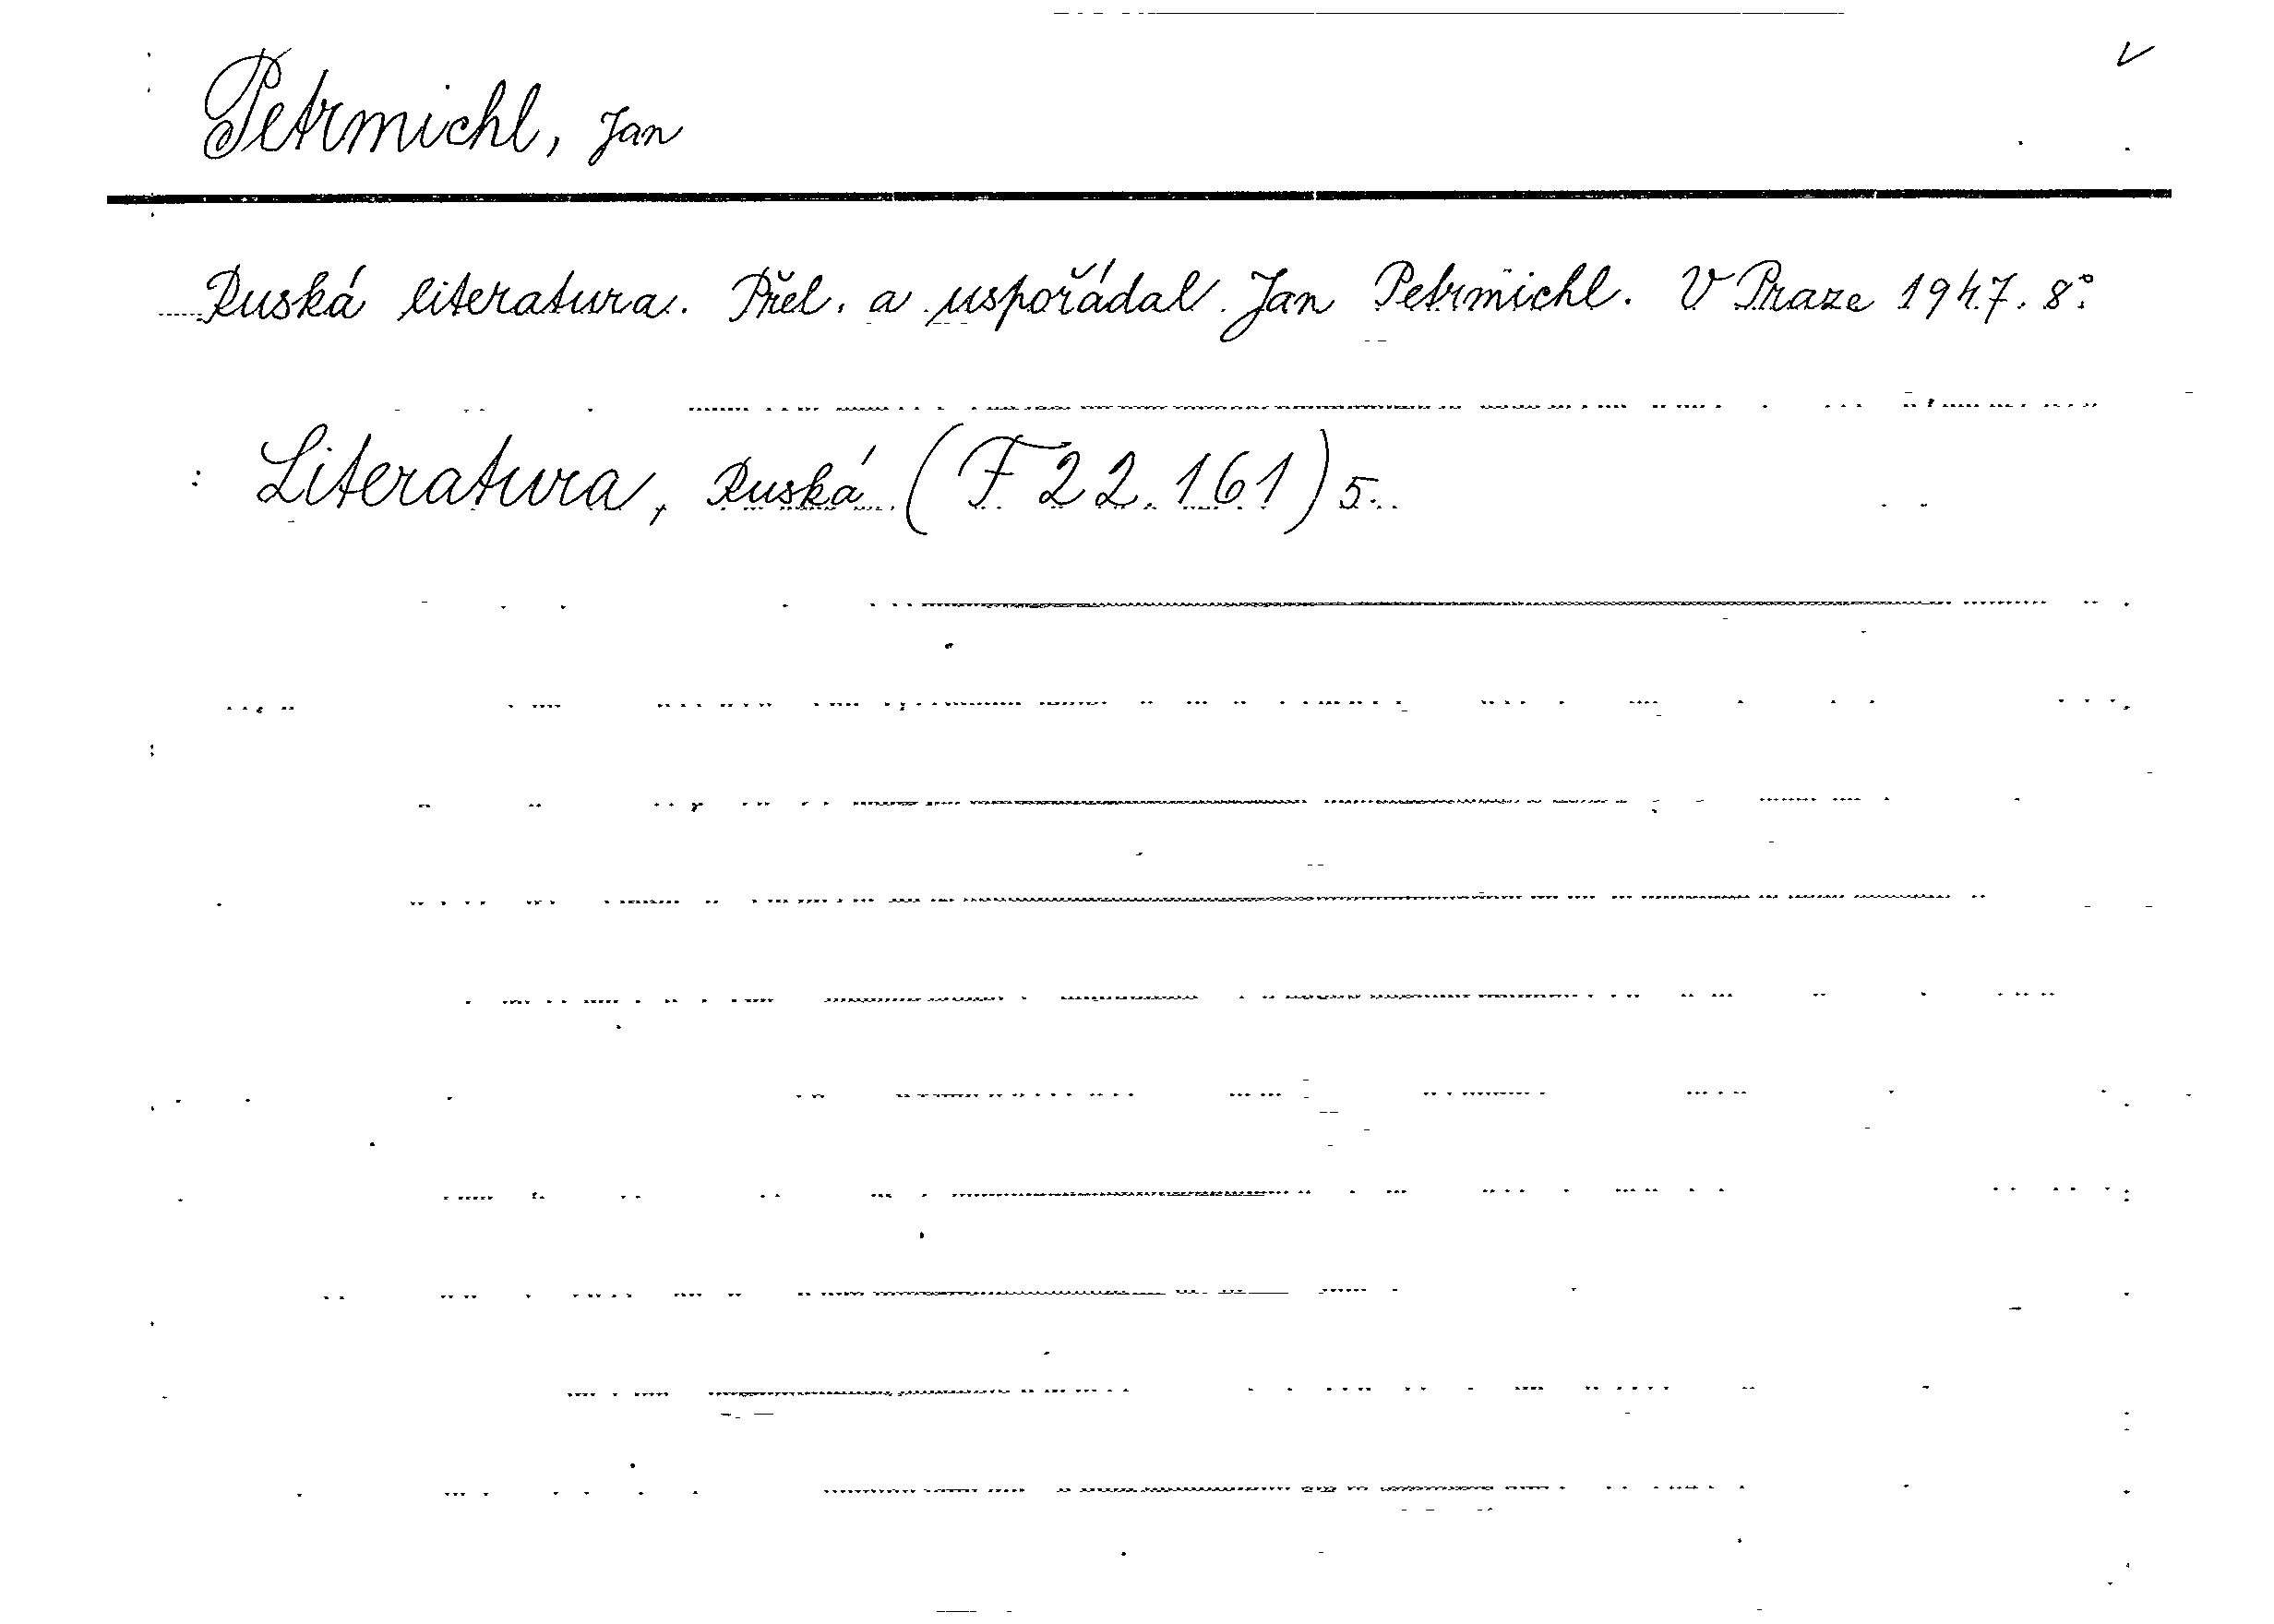 Petrmichl, Jan
Ruská literatura. Přel. a uspořádal Jan Petrmichl. V Praze 1947. 8°.
: Literatura, Ruská (F 22.161) 5.